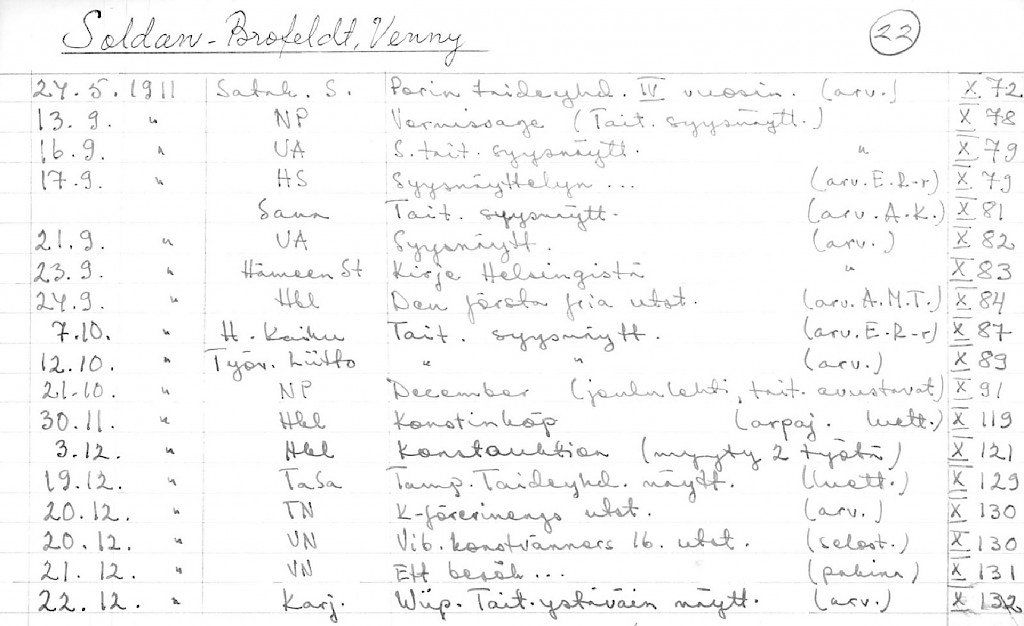 Soldan-Brofeldt, Venny 22
27.5.1911 Satak. S. Porin taideyhd. IV vuosin. (arv.) X 72
13.9. " NP Vernissage (Tait. syysnäytt.) X 78
16.9. " UA S. tait. syysnäytt. " X 79
17.9. " HS Syysnäyttelyn ... (arv. E.R-r) X 79
Tait. syysnäytt. (arv. A.K.) X 81
21.9. " UA Syysnäytt. (arv.) X 82
23.9. " Hämeen St Kirje Helsingistä " X 83
24.9. " Hbl Den första fria utst. (arv. A.M.T.) X 84
7.10. " H. Kaiku Tait. syysnäytt. (arv. E.R-r) X 87
12.10. " Työv. Liitto " " (arv.) X 89
21.10. " NP December (joululehti, tait. avustavat) X 91
30.11. " Hbl Konstinköp (arpaj. luett.) X 119
3.12. " Hbl Konstauktion (myyty 2 työtä) X 121
19.12. " TaSa Tamp. Taideyhd. näytt. (luett.) X 129
20.12. " TN K-förenings utst. (arv.) X 130
20.12. " VN Vib. konstvänners 16. utst. (selost.) X 130
21.12. " VN Ett besök ... (pakina) X 131
22.12. " Karj. Wiip. Tait. ystäväin näytt. (arv.) X 132